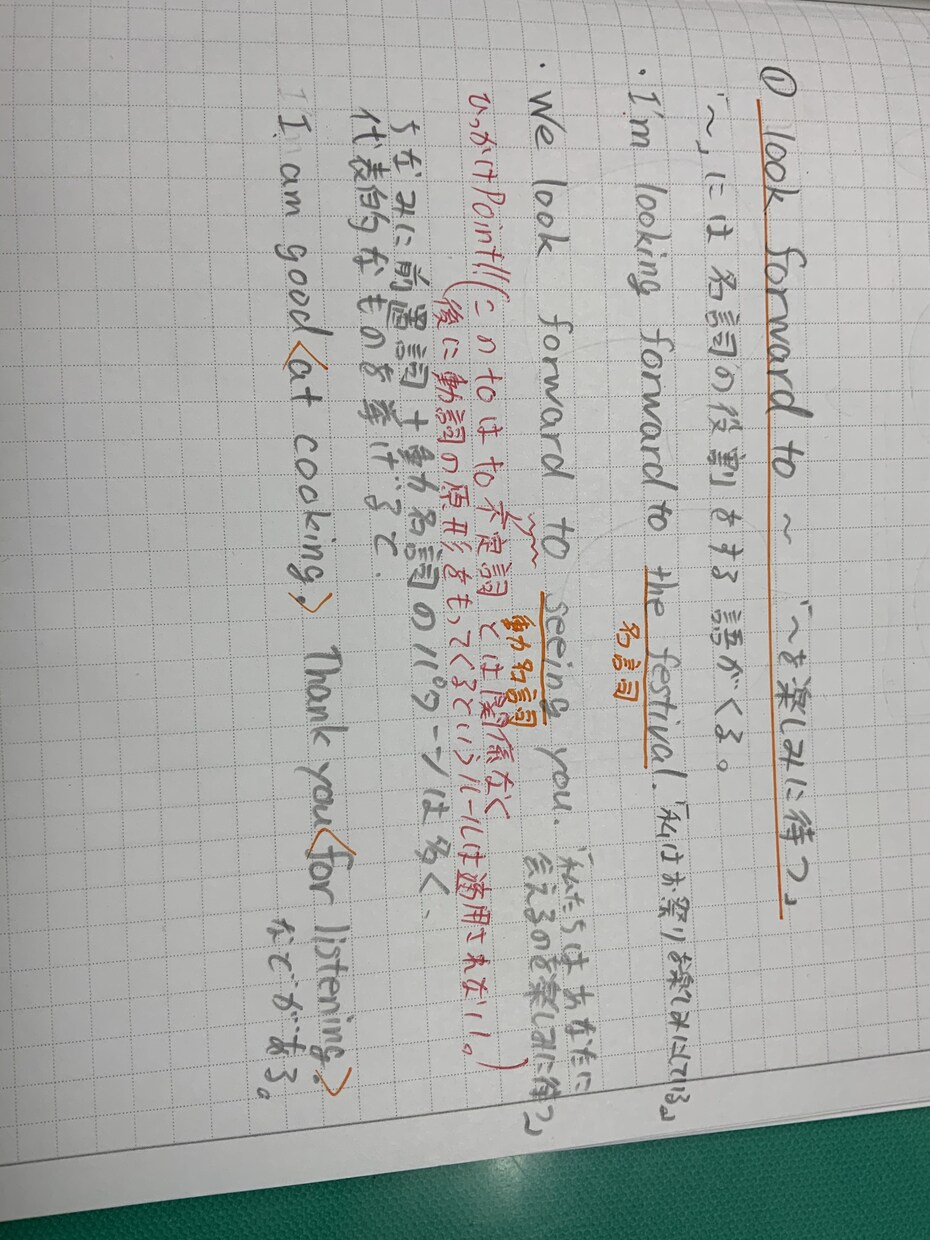 ① look forward to ～ 「～を楽しみに待つ」
「～」には名詞の役割をする語がくる。
・I'm looking forward to the festival. 「私はお祭りを楽しみにしている」
名詞
・We look forward to seeing you. 「私たちはあなたに
会えるのを楽しみに待つ～
動名詞
ひっかけPoint!!(このtoはto不定詞とは関係なく
後に動詞の原形をもってくるというルールは適用されない。)
ちなみに前置詞+動名詞のパターンは多く、
代表的なものを挙げると.
I am good〈at cooking.〉 Thank you〈for listening.〉
などがある。